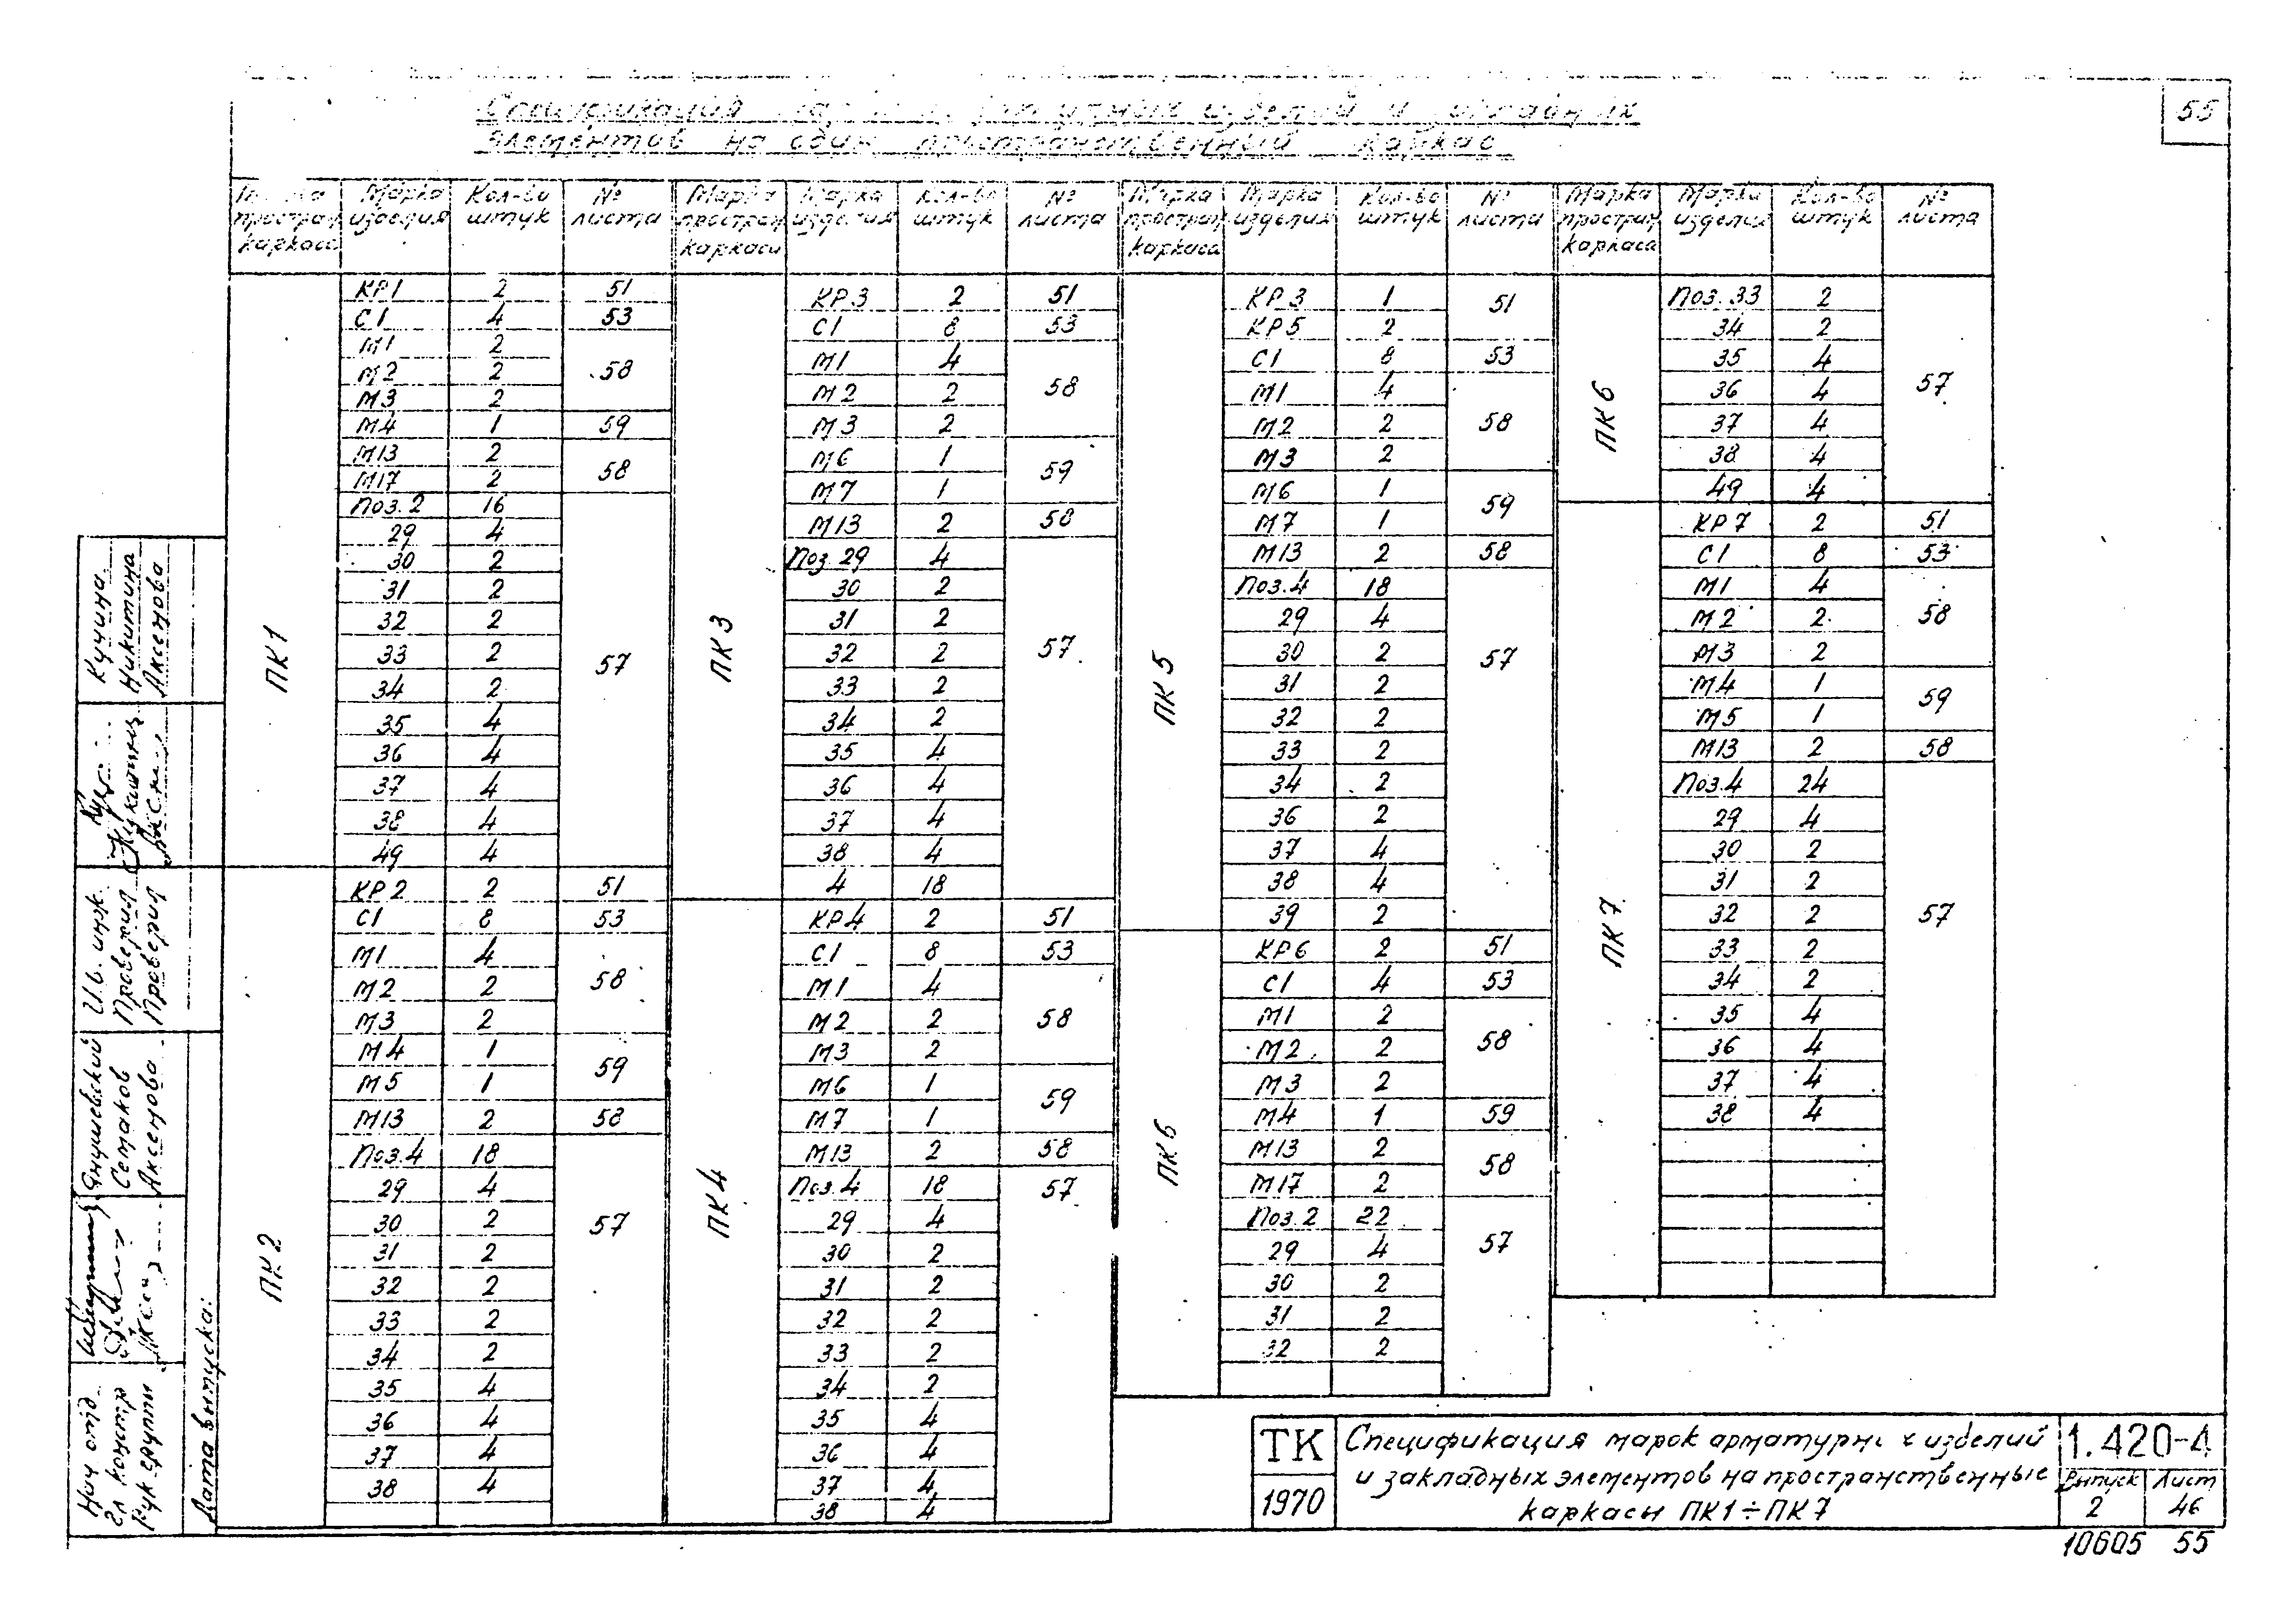 55
элементов на один пространственный каркас
Марка простран. каркаса | Марка изделия | Кол-во штук | № листа
ПК1
КР1 2 51
С1 4 53
М1 2
М2 2 58
М3 2
М4 1 59
М13 2 58
М17 2
Поз.2 16
29 4
30 2
31 2
32 2
33 2 57
34 2
35 4
36 4
37 4
38 4
49 4
ПК2
КР2 2 51
С1 8 53
М1 4
М2 2 58
М3 2
М4 1 59
М5 1
М13 2 58
Поз.4 18
29 4
30 2 57
31 2
32 2
33 2
34 2
35 4
36 4
37 4
38 4
Марка простран. каркаса | Марка изделия | Кол-во штук | № листа
ПК3
КР3 2 51
С1 8 53
М1 4
М2 2 58
М3 2
М6 1 59
М7 1
М13 2 58
Поз 29 4
30 2
31 2
32 2 57
33 2
34 2
35 4
36 4
37 4
38 4
4 18
ПК4
КР4 2 51
С1 8 53
М1 4
М2 2 58
М3 2
М6 1 59
М7 1
М13 2 58
Поз.4 18 57
29 4
30 2
31 2
32 2
33 2
34 2
35 4
36 4
37 4
38 4
Марка простран. каркаса | Марка изделия | Кол-во штук | № листа
ПК5
КР3 1 51
КР5 2
С1 8 53
М1 4
М2 2 58
М3 2
М6 1 59
М7 1
М13 2 58
Поз.4 18
29 4
30 2 57
31 2
32 2
33 2
34 2
36 2
37 4
38 4
39 2
ПК6
КР6 2 51
С1 4 53
М1 2
М2 2 58
М3 2
М4 1 59
М13 2 58
М17 2
Поз.2 22
29 4 57
30 2
31 2
32 2
Марка простран. каркаса | Марка изделия | Кол-во штук | № листа
ПК6
Поз.33 2
34 2
35 4
36 4 57
37 4
38 4
49 4
ПК7
КР7 2 51
С1 8 53
М1 4
М2 2 58
М3 2
М4 1 59
М5 1
М13 2 58
Поз.4 24
29 4
30 2
31 2
32 2 57
33 2
34 2
35 4
36 4
37 4
38 4
Кучина
Никитина
Аксенова
Проверил
Проверил
Янушевский
Семаков
Аксенова
Нач отд
Гл констр
Рук группы
Дата выпуска:
ТК
1970
Спецификация марок арматурных изделий
и закладных элементов на пространственные
каркасы ПК1÷ПК7
1.420-4
Выпуск Лист
2 46
10605 55